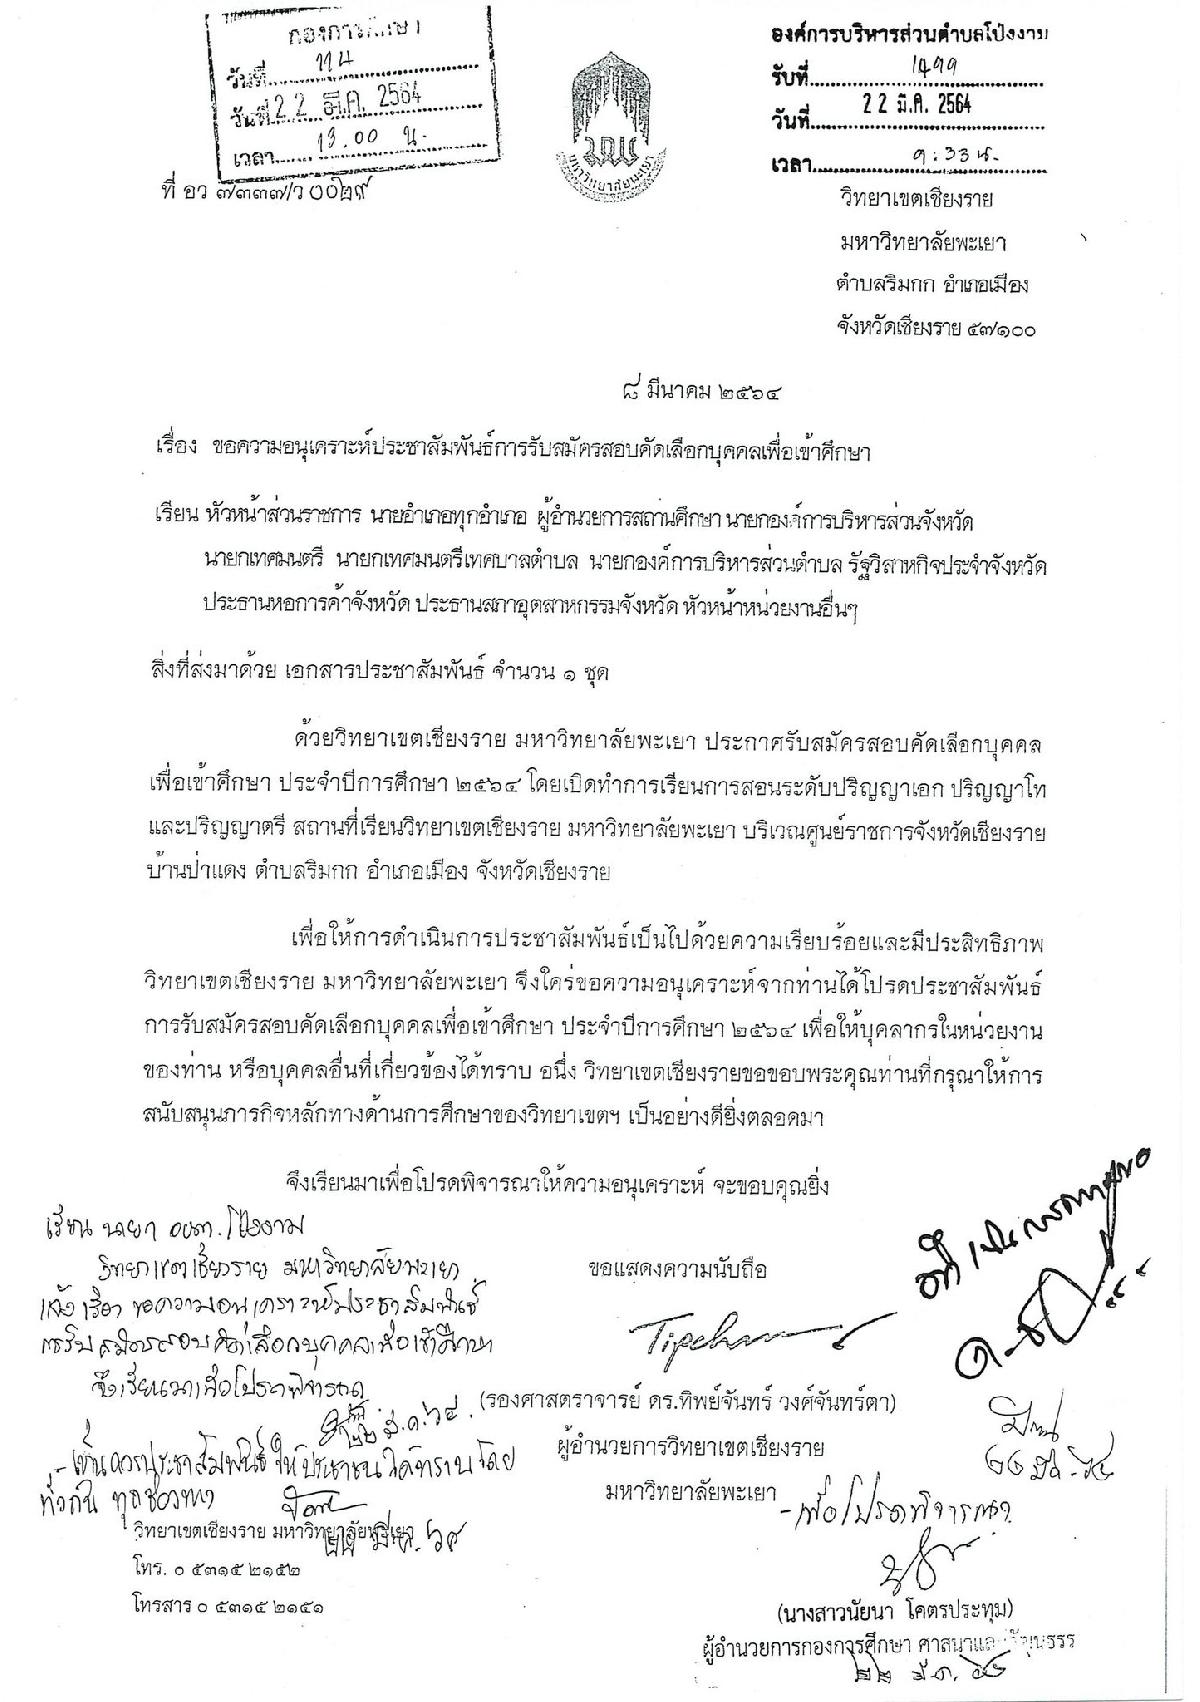 กองการศึกษา
วันที่
วันที่ 22 มี.ค. 2564
เวลา 13.00 น.
องค์การบริหารส่วนตำบลโป่งงาม
รับที่ 1499
วันที่ 22 มี.ค. 2564
เวลา
มหาวิทยาลัยพะเยา
ที่ อว ๗๓๓๗/ว ๐๐๒๙
วิทยาเขตเชียงราย
มหาวิทยาลัยพะเยา
ตำบลริมกก อำเภอเมือง
จังหวัดเชียงราย ๕๗๑๐๐
๘ มีนาคม ๒๕๖๔
เรื่อง ขอความอนุเคราะห์ประชาสัมพันธ์การรับสมัครสอบคัดเลือกบุคคลเพื่อเข้าศึกษา
เรียน หัวหน้าส่วนราชการ นายอำเภอทุกอำเภอ ผู้อำนวยการสถานศึกษา นายกองค์การบริหารส่วนจังหวัด
นายกเทศมนตรี นายกเทศมนตรีเทศบาลตำบล นายกองค์การบริหารส่วนตำบล รัฐวิสาหกิจประจำจังหวัด
ประธานหอการค้าจังหวัด ประธานสภาอุตสาหกรรมจังหวัด หัวหน้าหน่วยงานอื่นๆ
สิ่งที่ส่งมาด้วย เอกสารประชาสัมพันธ์ จำนวน ๑ ชุด
ด้วยวิทยาเขตเชียงราย มหาวิทยาลัยพะเยา ประกาศรับสมัครสอบคัดเลือกบุคคล
เพื่อเข้าศึกษา ประจำปีการศึกษา ๒๕๖๔ โดยเปิดทำการเรียนการสอนระดับปริญญาเอก ปริญญาโท
และปริญญาตรี สถานที่เรียนวิทยาเขตเชียงราย มหาวิทยาลัยพะเยา บริเวณศูนย์ราชการจังหวัดเชียงราย
บ้านป่าแดง ตำบลริมกก อำเภอเมือง จังหวัดเชียงราย
เพื่อให้การดำเนินการประชาสัมพันธ์เป็นไปด้วยความเรียบร้อยและมีประสิทธิภาพ
วิทยาเขตเชียงราย มหาวิทยาลัยพะเยา จึงใคร่ขอความอนุเคราะห์จากท่านได้โปรดประชาสัมพันธ์
การรับสมัครสอบคัดเลือกบุคคลเพื่อเข้าศึกษา ประจำปีการศึกษา ๒๕๖๔ เพื่อให้บุคลากรในหน่วยงาน
ของท่าน หรือบุคคลอื่นที่เกี่ยวข้องได้ทราบ อนึ่ง วิทยาเขตเชียงรายขอขอบพระคุณท่านที่กรุณาให้การ
สนับสนุนภารกิจหลักทางด้านการศึกษาของวิทยาเขตฯ เป็นอย่างดียิ่งตลอดมา
จึงเรียนมาเพื่อโปรดพิจารณาให้ความอนุเคราะห์ จะขอบคุณยิ่ง
เรียน นายก อบต.โป่งงาม
วิทยาเขตเชียงราย มหาวิทยาลัยพะเยา
แจ้งเรื่อง ขอความอนุเคราะห์ประชาสัมพันธ์
การรับสมัครสอบคัดเลือกบุคคลเพื่อเข้าศึกษา
จึงเรียนมาเพื่อโปรดพิจารณา
๒๒ มี.ค. ๖๔
- เห็นควรประชาสัมพันธ์ให้ประชาชนได้ทราบโดย
ทั่วกัน ทุกช่องทาง
ขอแสดงความนับถือ
(รองศาสตราจารย์ ดร.ทิพย์จันทร์ วงศ์จันทร์ตา)
ผู้อำนวยการวิทยาเขตเชียงราย
มหาวิทยาลัยพะเยา
- เพื่อโปรดพิจารณา
วิทยาเขตเชียงราย มหาวิทยาลัยพะเยา
โทร. ๐ ๕๓๑๕ ๒๑๕๒
โทรสาร ๐ ๕๓๑๕ ๒๑๕๑
(นางสาวนัยนา โคตรประทุม)
ผู้อำนวยการกองการศึกษา ศาสนาและวัฒนธรรม
๒๒ มี.ค. ๖๔